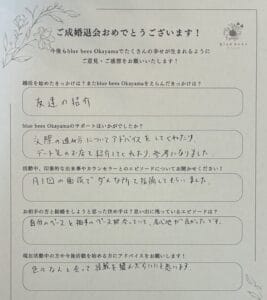 ご成婚退会おめでとうございます！
blue bees
今後もblue bees Okayamaでたくさんの幸せが生まれるように
ご意見・ご感想をお願いいたします！
婚活を始めたきっかけは？またblue bees Okayamaをえらんだきっかけは？
友達の紹介
blue bees Okayamaのサポートはいかがでしたか？
交際の進め方についてアドバイスをしてくれたり
デート先のお店を紹介してくれたり、参考になりました
活動中、印象的な出来事やカウンセラーとのエピソードについてお聞かせください！
月1回の面談でダメな所を指摘してもらいました
お相手の方と結婚をしようと思った決め手は？思い出に残っているエピソードは？
自分のペースと相手のペースが合っていて、居心地が良かったです。
現在活動中の方や今後活動を始める方にアドバイスをお願いします！
色々な人と会って経験を積んだらいいと思います